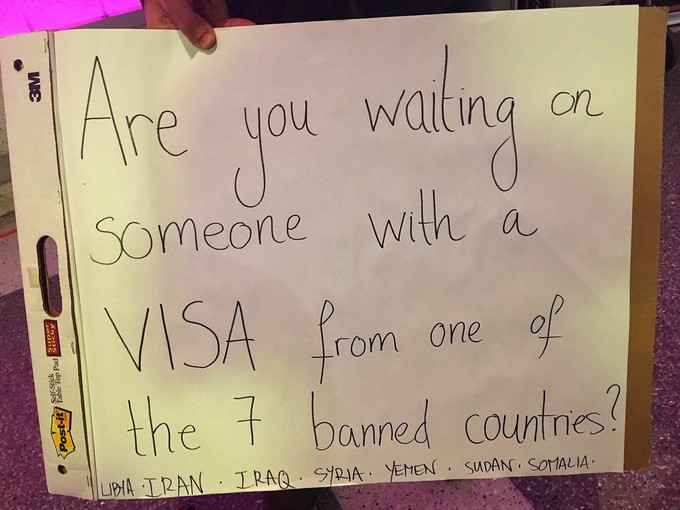 Are you waiting on
someone with a
VISA from one of
the 7 banned countries?
LIBYA · IRAN · IRAQ · SYRIA · YEMEN · SUDAN · SOMALIA ·
3M
Super Sticky
Post-it
Self-Stick
Table Top Pad